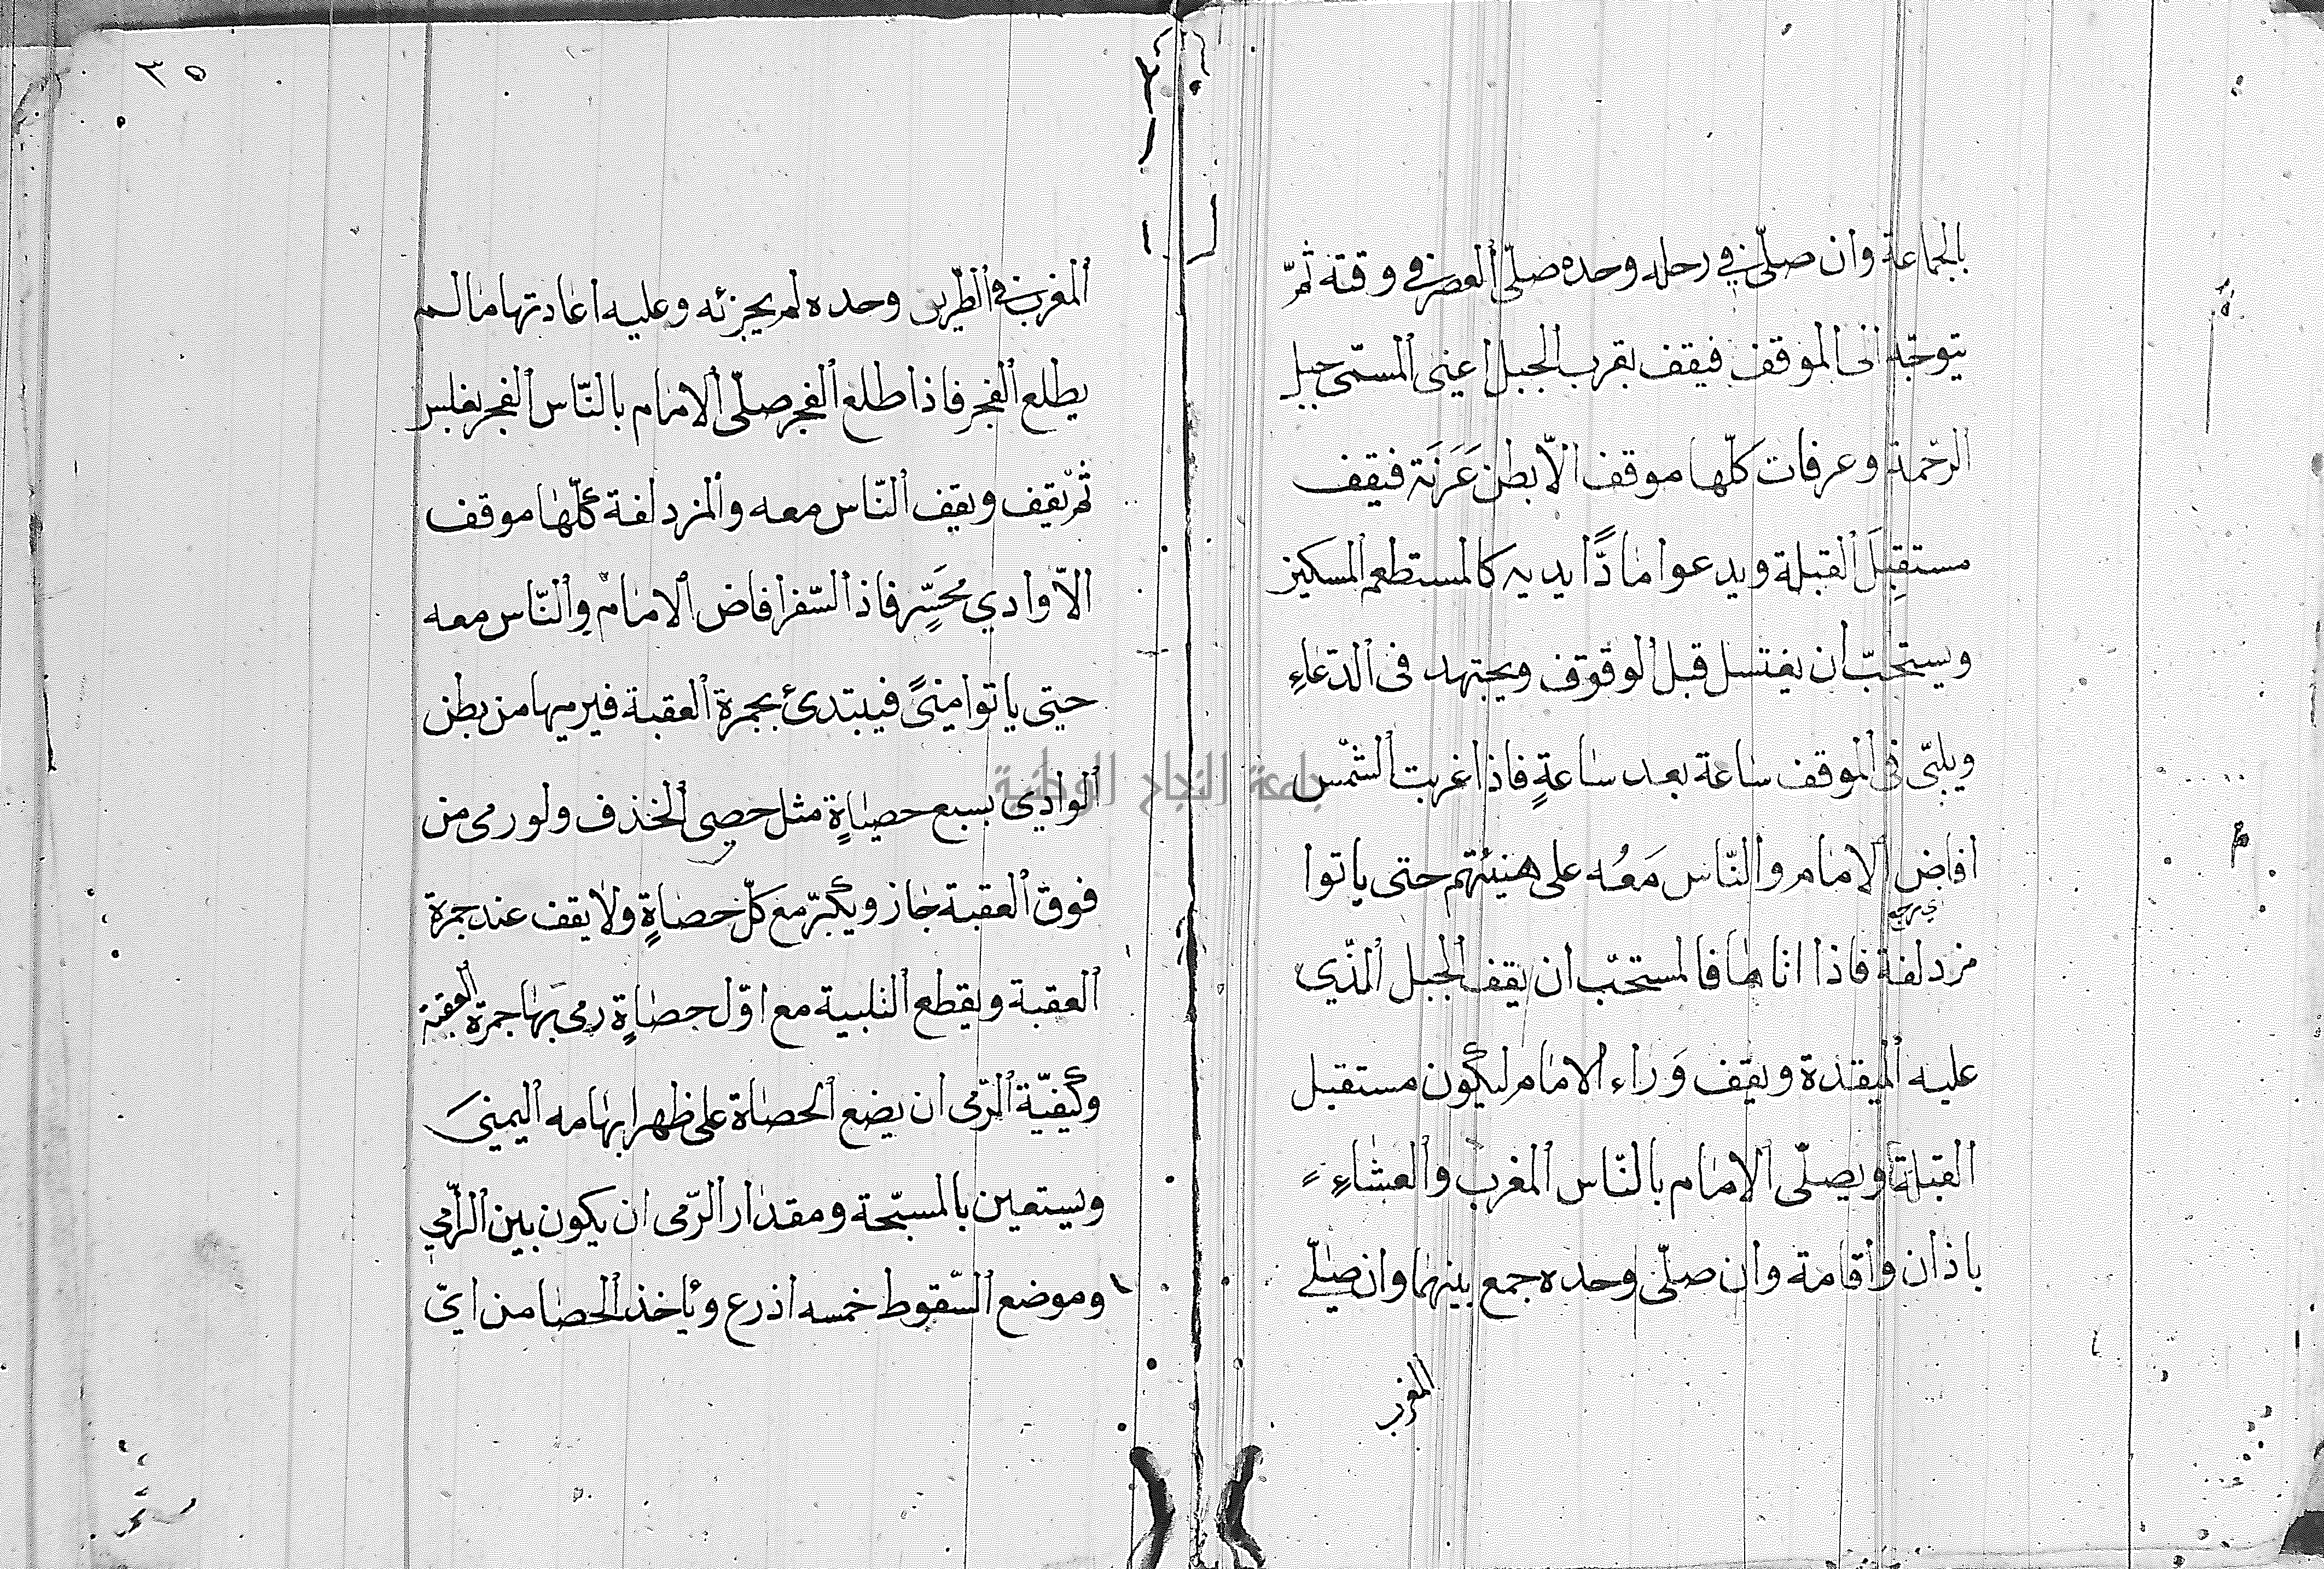 بالجماعة وان صلّى في رحله وحده صلّى العصر في وقته ثمّ
يتوجّه الى الموقف فيقف بقرب الجبل اعنى المسمّى جبل
الرحّمة وعرفات كلّها موقف الّا بطن عَرَنَة فيقف
مستقِبلَ القبلة ويدعوا مادًّا يديه كالمستطعم المسكين
ويستحبّ ان يغتسل قبل الوقوف ويجتهد فى الدّعاءِ
ويلبّى فى الموقف ساعة بعد ساعةٍ فاذا غربت الشّمس
افاض الامام والنّاس مَعُه على هنيئتهم حتى ياتوا
اي رجع
مزدلفة فاذا اتاها فالمستحبّ ان يقف الجبل الذّي
عليه الميقدة ويقف وَراء الامام ليكون مستقبل
القبلة ويصلّى الامام بالنّاس المغرب والعشاءِ
باذان واقامة وان صلّى وحده جمع بينهما وان صلّى
المغرب
٣٥
المغرب في الطّريق وحده لم يجزئه وعليه اعادتها مالم
يطلع الفجر فاذا طلع الفجر صلّى الامام بالنّاس الفجر بغلس
ثمّ يقف ويقف النّاس معه والمزدلفة كلّها موقف
الّا وادي مُحَسِّر فاذا السّفر افاض الامام والنّاس معه
حتى ياتوا منىً فيبتدئ بجمرة العقبة فيرميها من بطن
الوادي بسبع حصياةٍ مثل حصى الخذف ولو رمى من
فوق العقبة جاز ويكبّر مع كلّ حصاةٍ ولا يقف عند جمرة
العقبة ويقطع التلبية مع اوّل حصاةٍ رمى بها جمرة العقبة
وكيفيّة الرّمى ان يضع الحصاة على ظهر ابهامه اليمنىَ
ويستعين بالمسبّحة ومقدار الرّمى ان يكون بين الرّامي
وموضع السّقوط خمسه اذرع ويأخذ الحصا من ايّ
جامعة النجاح الوطنية